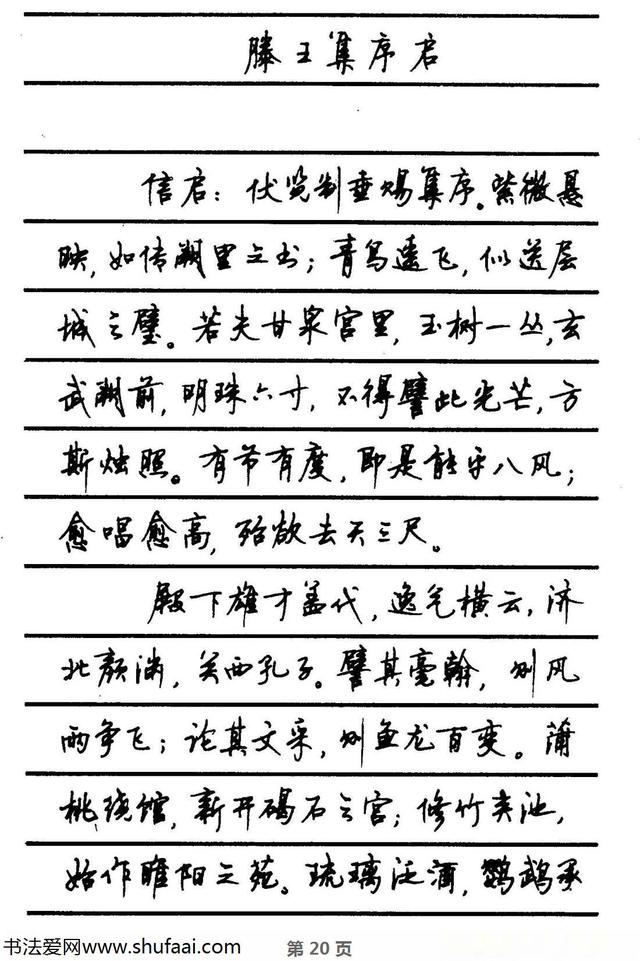 滕王集序启
信启：伏览制垂赐集序。紫微悬
映，如传阙里之书；青鸟遥飞，似送层
城之璧。若夫甘泉宫里，玉树一丛，玄
武阙前，明珠六寸，不得譬此光芒，方
斯烛照。有节有度，即是能平八风；
愈唱愈高，殆欲去天三尺。
殿下雄才盖代，逸气横云，济
北颜渊，关西孔子。譬其毫翰，则风
雨争飞；论其文采，则鱼龙百变。蒲
桃绕馆，新开碣石之宫；修竹夹池，
始作睢阳之苑。琉璃泛酒，鹦鹉承
书法爱网www.shufaai.com
第 20 页